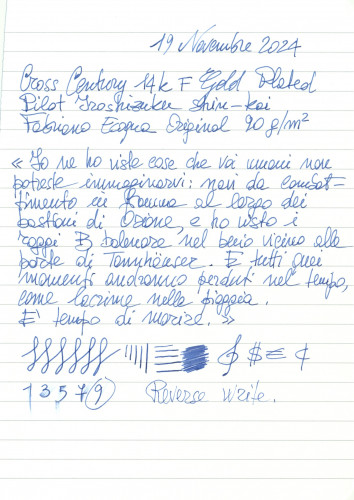 19 Novembre 2024
Cross Century 14k F Gold Plated
Pilot Iroshizuku Shin-kai
Fabriano Ecoqua Original 90 g/m²
« Io ne ho viste cose che voi umani non
potreste immaginarvi: navi da combat-
timento in fiamme al largo dei
bastioni di Orione, e ho visto i
raggi B balenare nel buio vicino alle
porte di Tannhäuser. E tutti quei
momenti andranno perduti nel tempo,
come lacrime nella pioggia.
E' tempo di morire. »
$ € ¢
1 3 5 7 9 Reverse write.